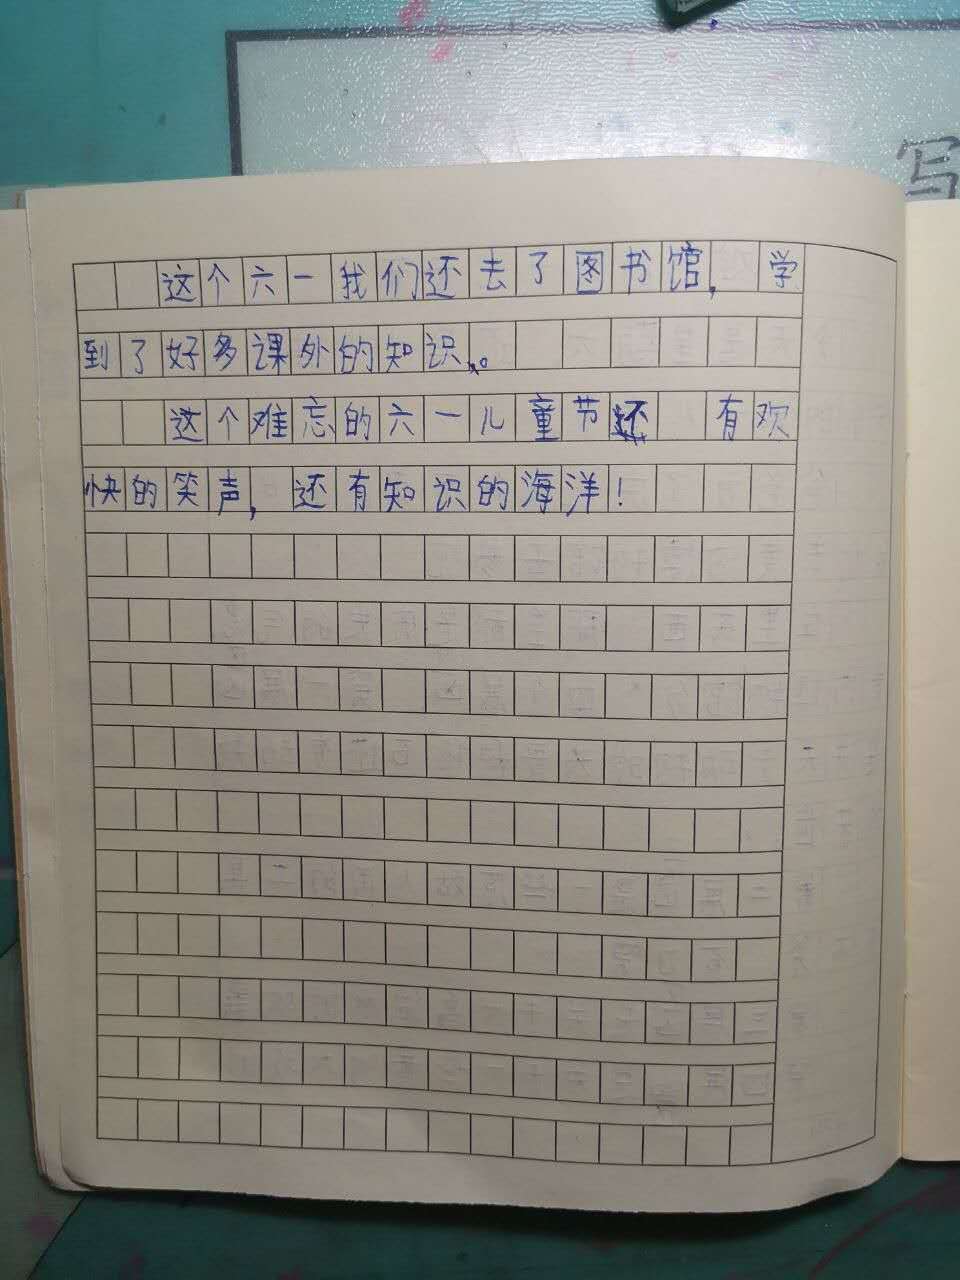 写
这个六一我们还去了图书馆,学
到了好多课外的知识。
这个难忘的六一儿童节还 有欢
快的笑声,还有知识的海洋!